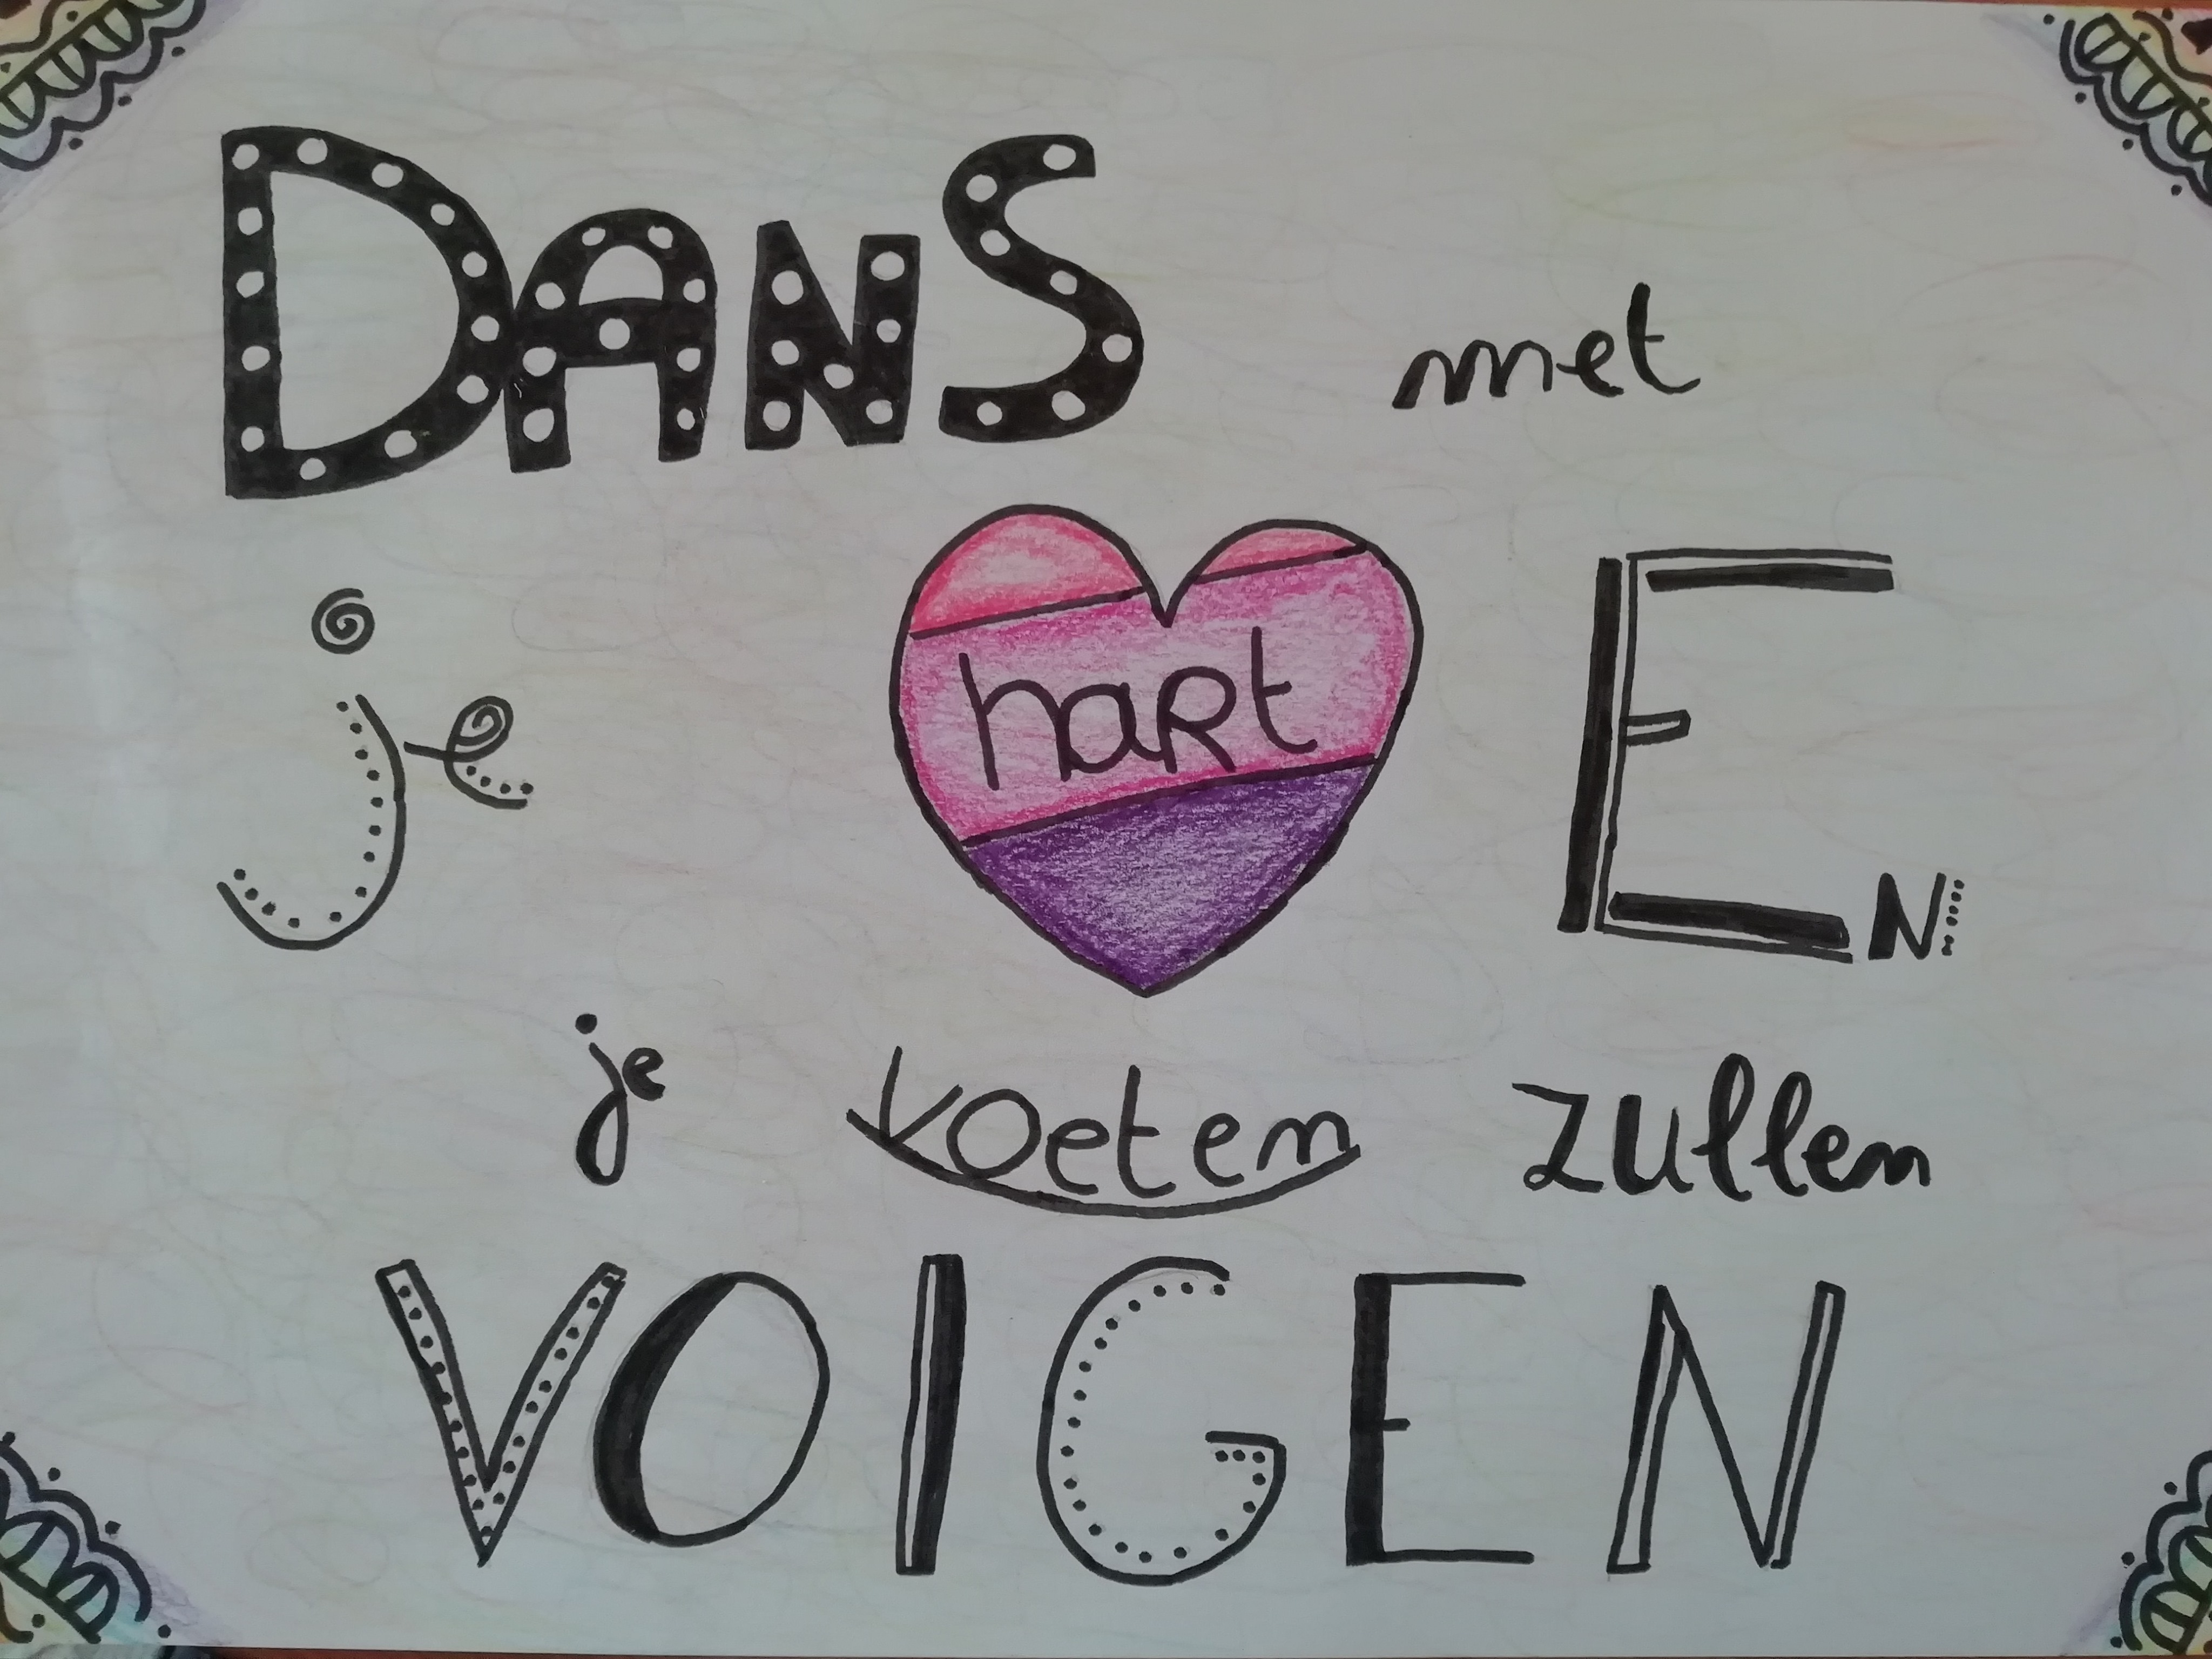 DANS met
je hart EN
je voeten zullen
VOlGEN